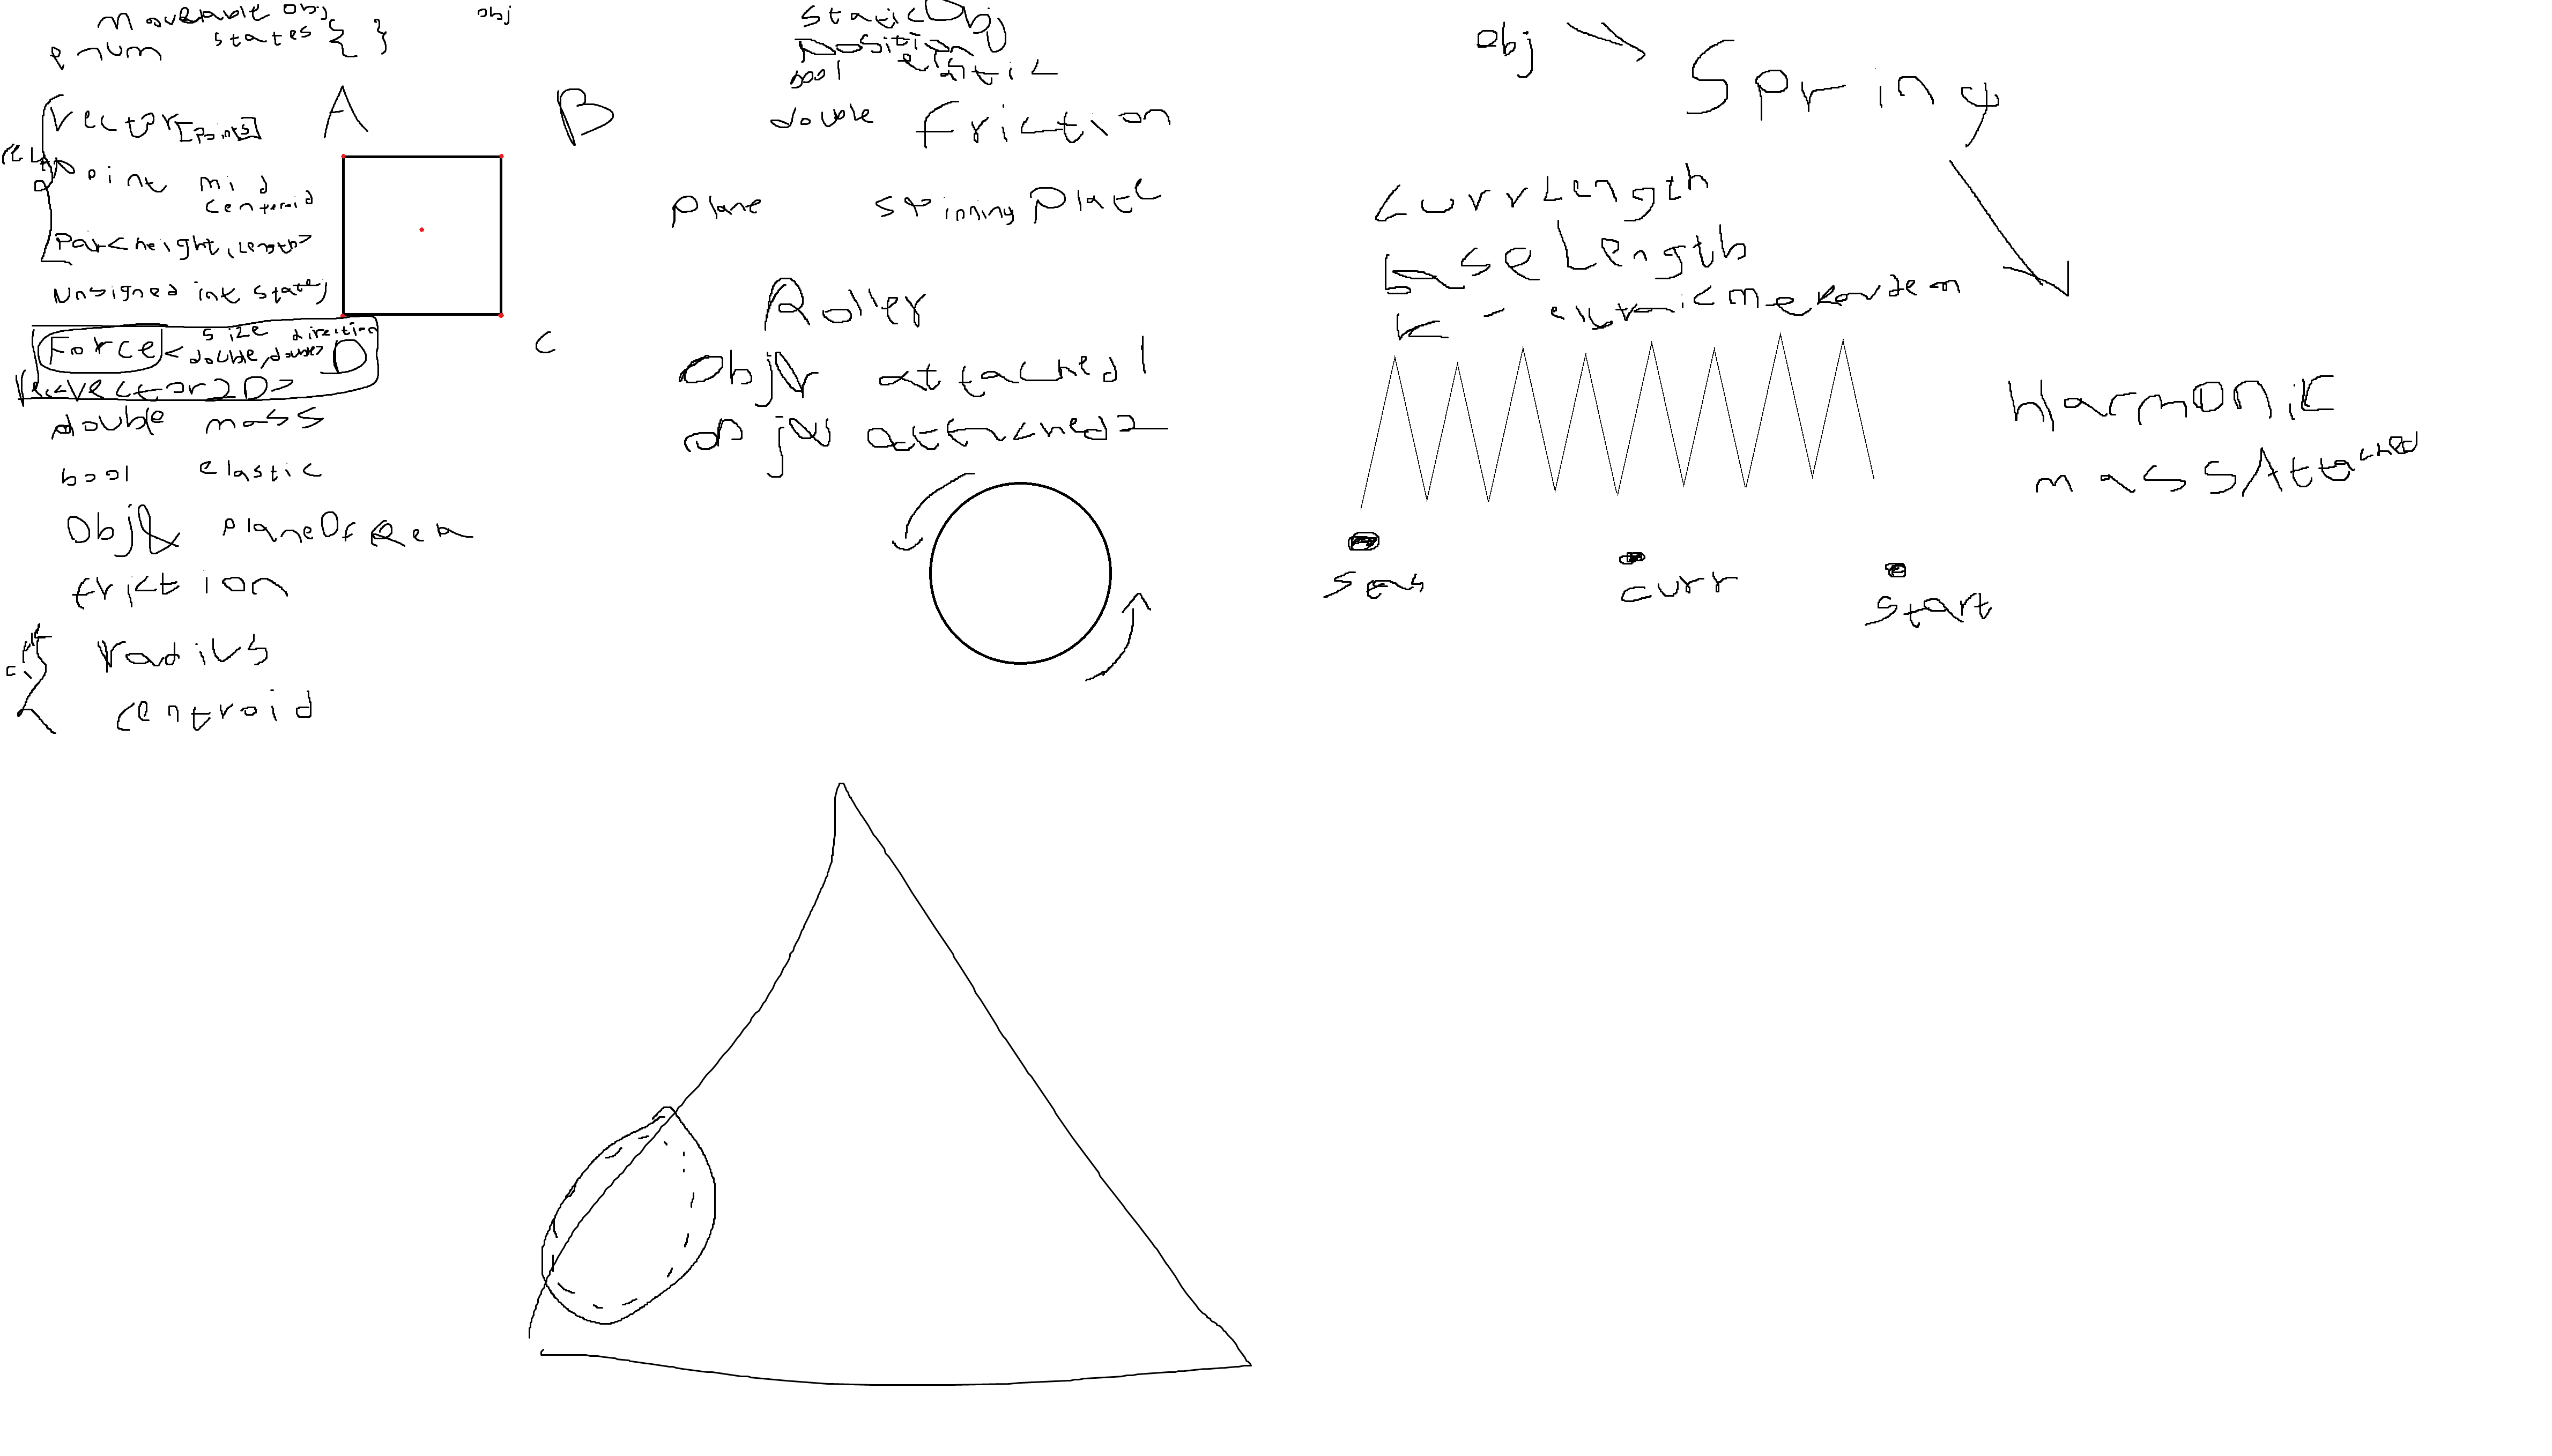 Moveable obj
enum states { }
obj
Vector[points]
Point mid
centeroid
Pair<height, Length>
Unsigned int state;
size direction
Force <double, double>
Vec<Vector2D>
double mass
bool elastic
Obj& planeOf
friction
radius
centroid
A
B
C
D
staticObj
position
bool
double friction
plane spinningPlate
Roller
Obj& attached1
obj& attached2
obj
Spring
currLength
baseLength
K -
Harmonic
massAttached
curr
start